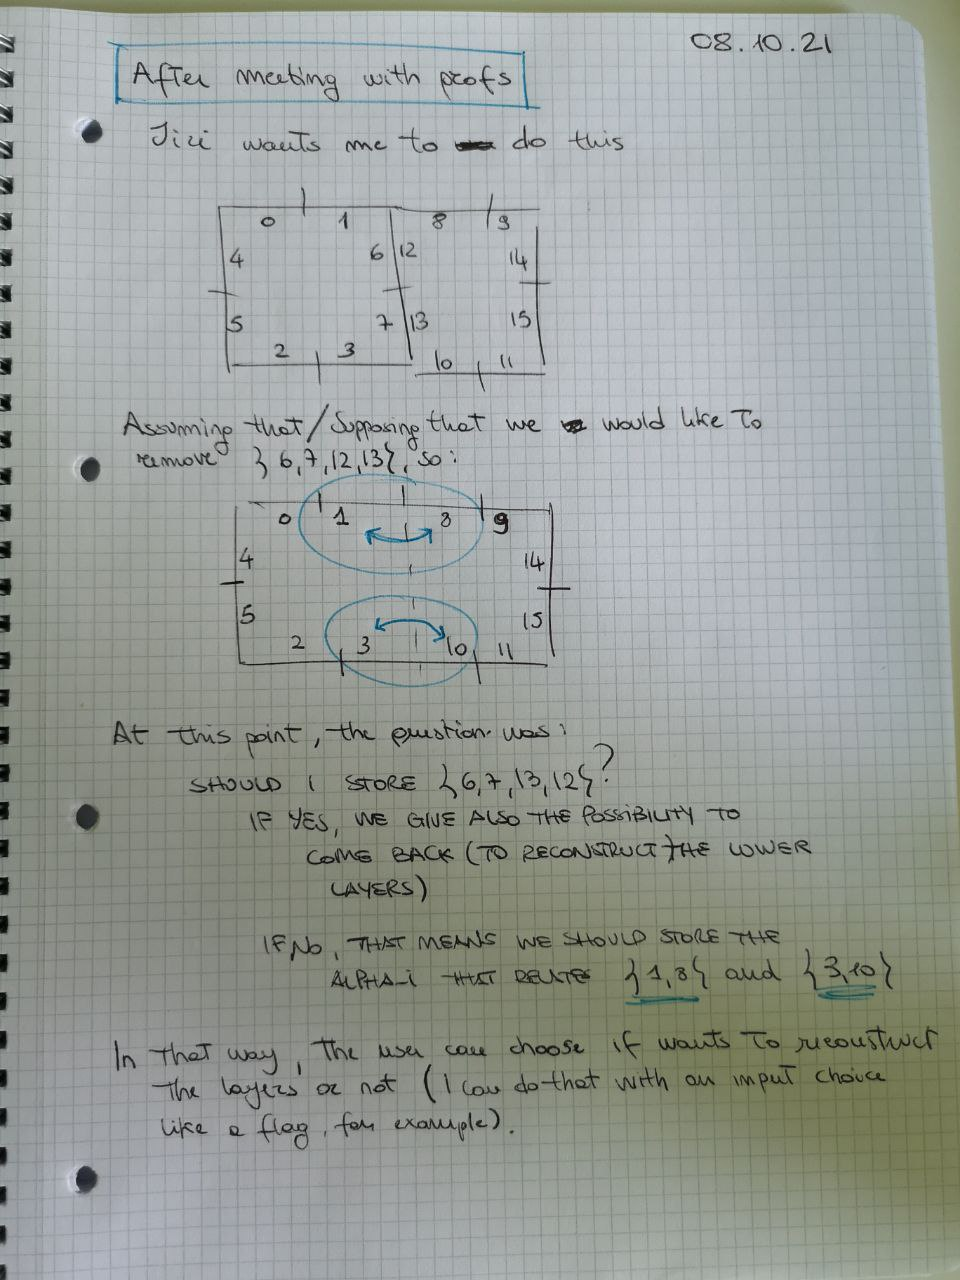 08.10.21
After meeting with profs
Jiri wants me to do this
0 1 8 9
4 6 12 14
5 7 13 15
2 3 10 11
Assuming that/Supposing that we would like to
remove {6,7,12,13}, so:
0 1 8 9
4 14
5 15
2 3 10 11
At this point, the question was:
SHOULD I STORE {6,7,13,12}?
IF YES, WE GIVE ALSO THE POSSIBILITY TO
COME BACK (TO RECONSTRUCT THE LOWER
LAYERS)
IF NO, THAT MEANS WE SHOULD STORE THE
ALPHA-i THAT RELATES {1,8} and {3,10}
In that way, the user can choose if wants to reconstruct
the layers or not (I can do that with an input choice
like a flag, for example).